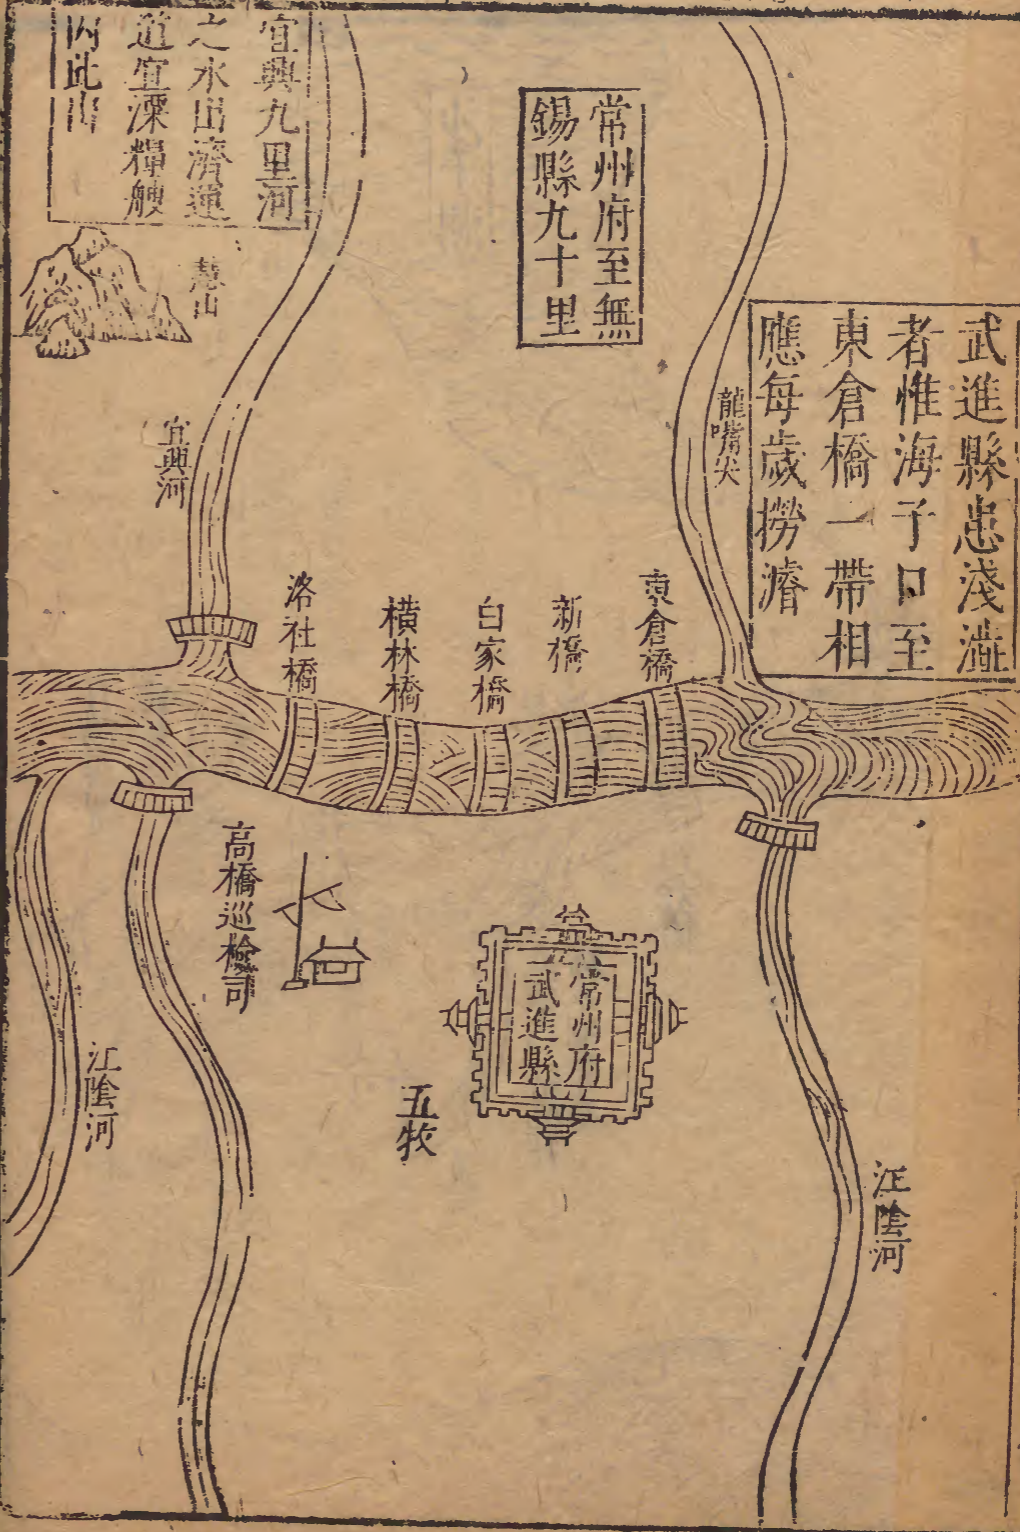 武進縣患淺灘
者惟海子口至
東倉橋一帶相
應每歲撈濬
龍嘴尖
常州府至無
錫縣九十里
宜興九里河
之水出濟運
道宜溧糧艘
由此出
慧山
宜興河
東倉橋
新橋
白家橋
橫林橋
洛社橋
常州府
武進縣
五牧
高橋巡檢司
江陰河
江陰河